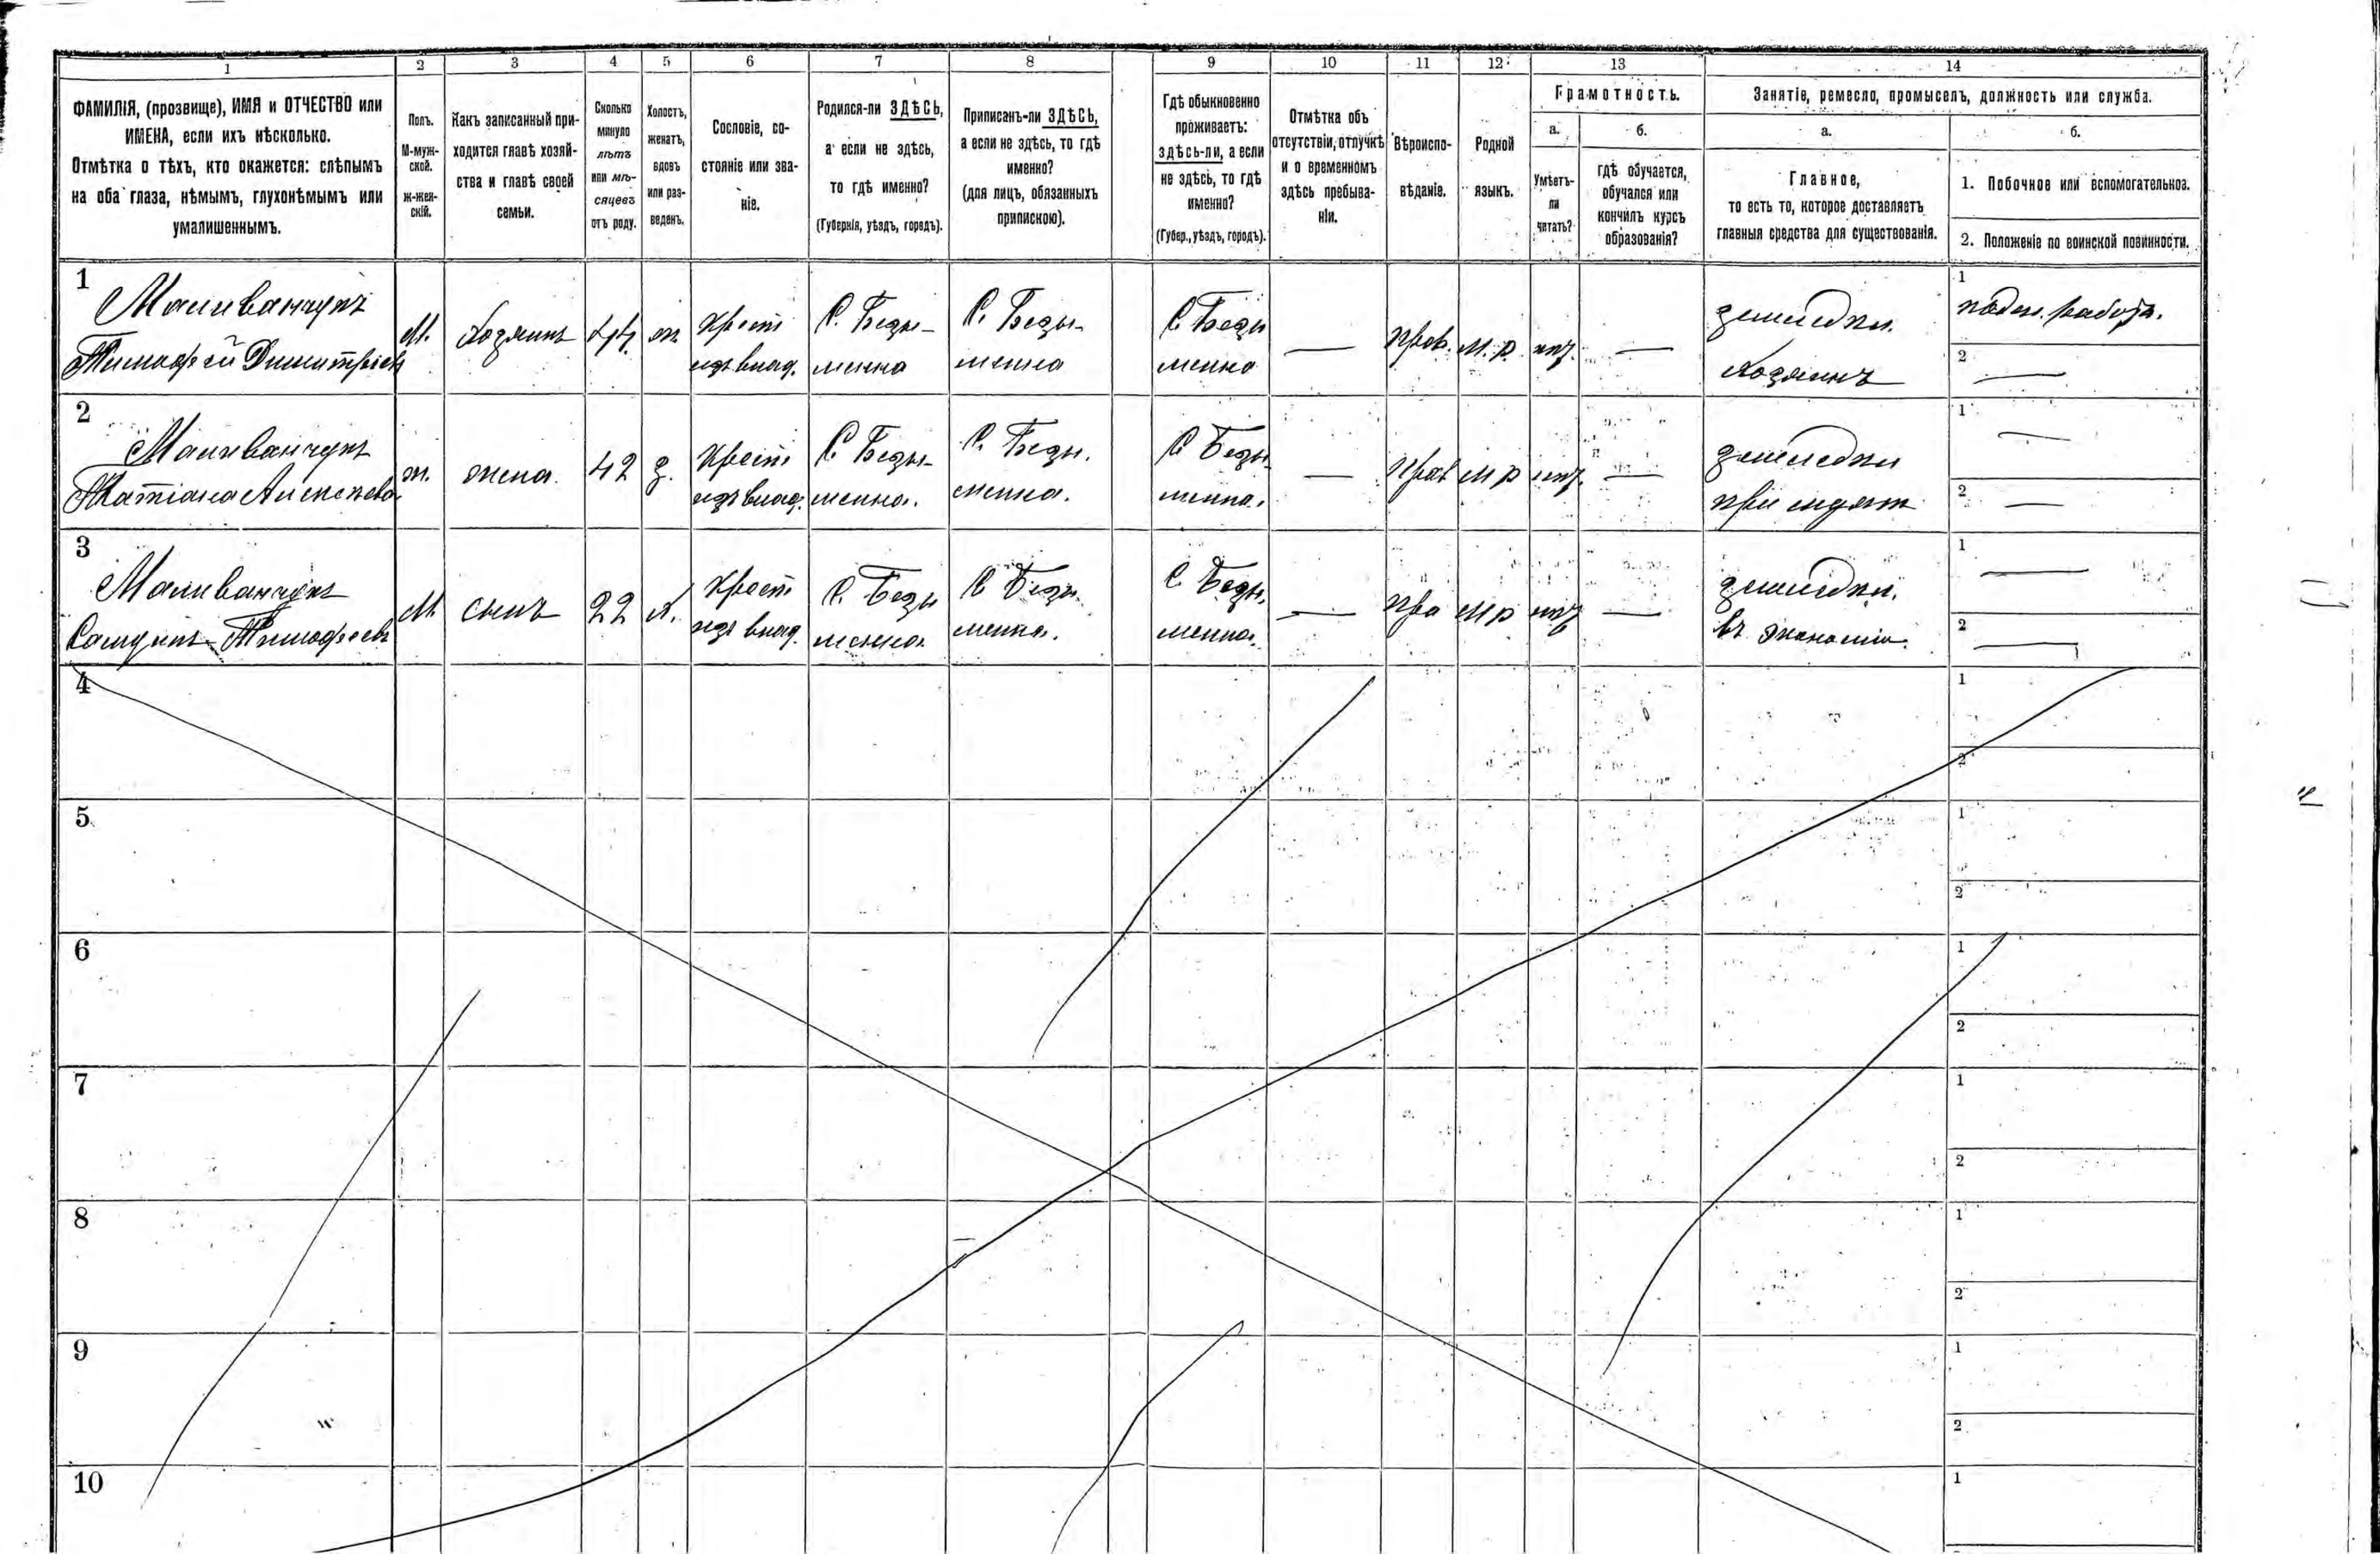 1 2 3 4 5 6 7 8 9 10 11 12 13 14
ФАМИЛІЯ, (прозвище), ИМЯ и ОТЧЕСТВО или
ИМЕНА, если ихъ нѣсколько.
Отмѣтка о тѣхъ, кто окажется: слѣпымъ
на оба глаза, нѣмымъ, глухонѣмымъ или
умалишеннымъ.
Полъ.
М-муж-
ской.
ж-жен-
скій.
Какъ записанный при-
ходится главѣ хозяй-
ства и главѣ своей
семьи.
Сколько
минуло
лѣтъ
или мѣ-
сяцевъ
отъ роду.
Холостъ,
женатъ,
вдовъ
или раз-
веденъ.
Сословіе, со-
стояніе или зва-
ніе.
Родился-ли ЗДѢСЬ,
а если не здѣсь,
то гдѣ именно?
(Губернія, уѣздъ, городъ).
Приписанъ-ли ЗДѢСЬ,
а если не здѣсь, то гдѣ
именно?
(для лицъ, обязанныхъ
припискою).
Гдѣ обыкновенно
проживаетъ:
здѣсь-ли, а если
не здѣсь, то гдѣ
именно?
(Губер., уѣздъ, городъ).
Отмѣтка объ
отсутствіи, отлучкѣ
и о временномъ
здѣсь пребыва-
ніи.
Вѣроиспо-
вѣданіе.
Родной
языкъ.
Грамотность.
а.
Умѣетъ-
ли
читать?
б.
гдѣ обучается,
обучался или
кончилъ курсъ
образованія?
Занятіе, ремесло, промыселъ, должность или служба.
а.
Главное,
то есть то, которое доставляетъ
главныя средства для существованія.
б.
1. Побочное или вспомогательноз.
2. Положеніе по воинской повинности.
1
Маливанчукъ
Тимофей Димитріевъ
М.
Хозяинъ
44
ж
Крест
изъ влад.
С. Безы-
менна
С. Безы-
менна
С Безы
менна
—
Прав.
м. р.
нѣ.
—
земледѣл.
Хозяинъ
1
поден. работа.
2
—
2
Маливанчукъ
Татіана Алексѣева
ж.
жена
42
з.
Крест
изъ влад.
С. Безы-
менна.
С. Безы.
менна.
С Безы
менна.
—
Прав
м р
нѣ.
—
земледѣл
при мужѣ
1
—
2
—
3
Маливанчукъ
Тимофѣевъ
М
сынъ
22
х.
Крест
изъ влад.
С. Безы
менна
С Безы
менна.
С. Безы.
менна.
—
Пра
м р
нѣ
—
земледѣл.
въ экономіи.
1
—
2
—
4
1
2
5
1
2
6
1
2
7
1
2
8
1
2
9
1
2
10
1